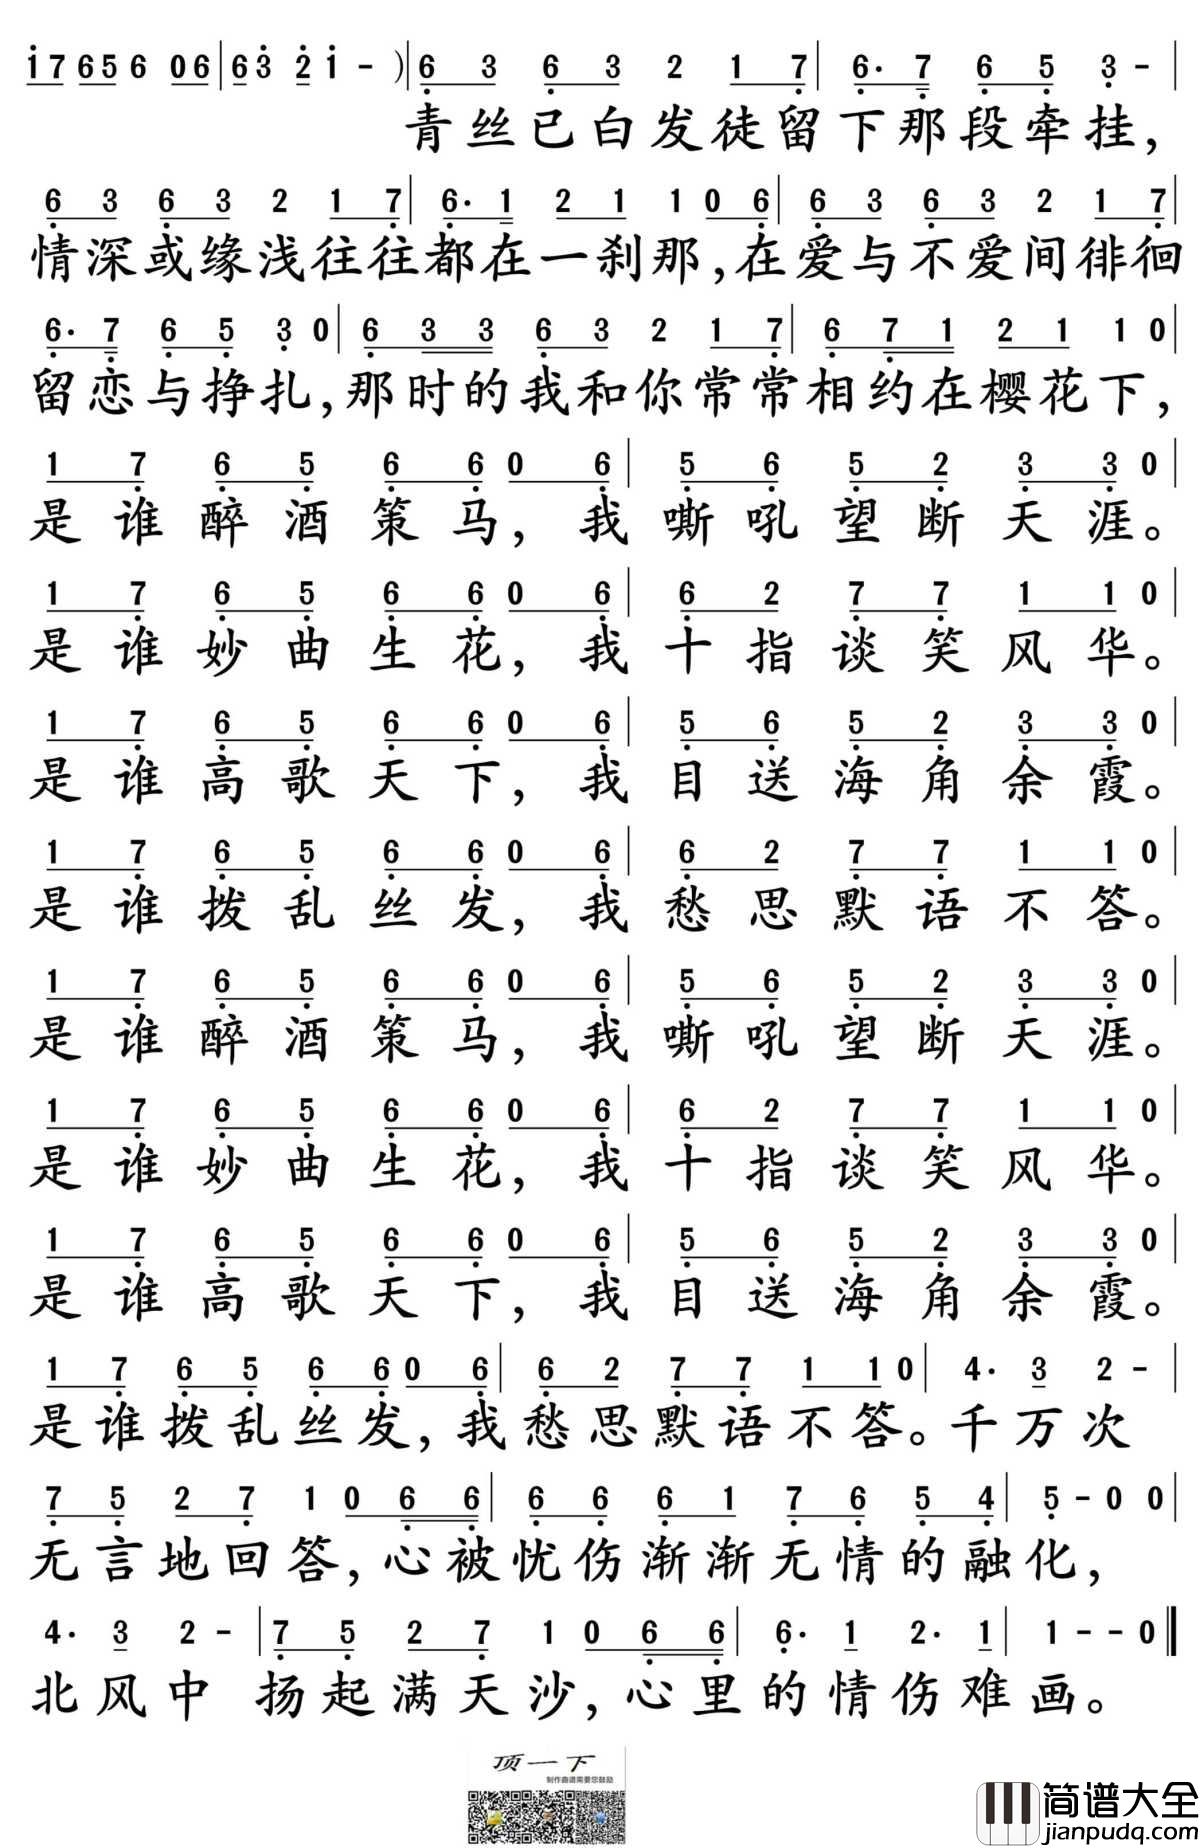 i 7 6 5 6 0 6 | 6 3 2 i - ) | 6 3 6 3 2 1 7 | 6· 7 6 5 3 - |
青丝已白发徒留下那段牵挂，
6 3 6 3 2 1 7 | 6· 1 2 1 1 0 6 | 6 3 6 3 2 1 7 |
情深或缘浅往往都在一刹那，在爱与不爱间徘徊
6· 7 6 5 3 0 | 6 3 3 6 3 2 1 7 | 6 7 1 2 1 1 0 |
留恋与挣扎，那时的我和你常常相约在樱花下，
1 7 6 5 6 6 0 6 | 5 6 5 2 3 3 0 |
是谁醉酒策马，我嘶吼望断天涯。
1 7 6 5 6 6 0 6 | 6 2 7 7 1 1 0 |
是谁妙曲生花，我十指谈笑风华。
1 7 6 5 6 6 0 6 | 5 6 5 2 3 3 0 |
是谁高歌天下，我目送海角余霞。
1 7 6 5 6 6 0 6 | 6 2 7 7 1 1 0 |
是谁拨乱丝发，我愁思默语不答。
1 7 6 5 6 6 0 6 | 5 6 5 2 3 3 0 |
是谁醉酒策马，我嘶吼望断天涯。
1 7 6 5 6 6 0 6 | 6 2 7 7 1 1 0 |
是谁妙曲生花，我十指谈笑风华。
1 7 6 5 6 6 0 6 | 5 6 5 2 3 3 0 |
是谁高歌天下，我目送海角余霞。
1 7 6 5 6 6 0 6 | 6 2 7 7 1 1 0 | 4· 3 2 - |
是谁拨乱丝发，我愁思默语不答。千万次
7 5 2 7 1 0 6 6 | 6 6 6 1 7 6 5 4 | 5 - 0 0 |
无言地回答，心被忧伤渐渐无情的融化，
4· 3 2 - | 7 5 2 7 1 0 6 6 | 6· 1 2· 1 | 1 - - 0 ‖
北风中 扬起满天沙，心里的情伤难画。
顶一下
制作曲谱需要您鼓励
简谱大全
jianpudq.com